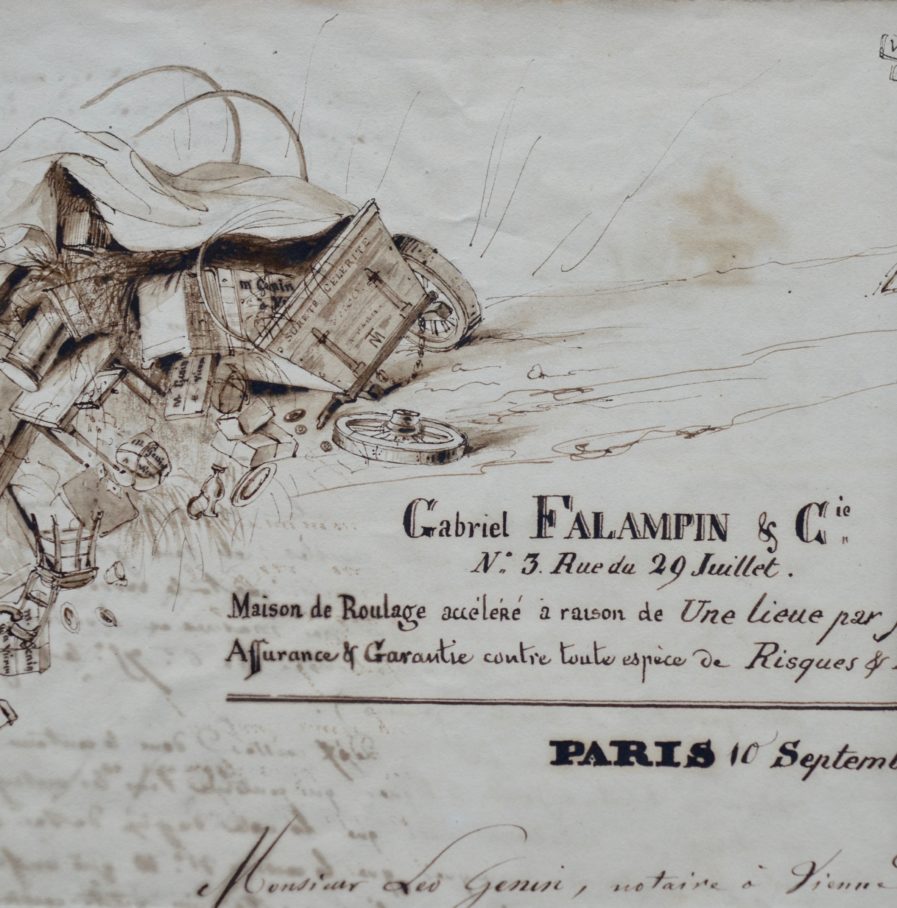 SUREUR CELERITE
Gabriel FALAMPIN & Cie
N.º 3. Rue du 29 Juillet.
Maison de Roulage accéléré à raison de Une lieue par j
Assurance & Garantie contre toute espèce de Risques &
PARIS 10 Septemb
Monsieur Léo Genin, notaire à Vienne